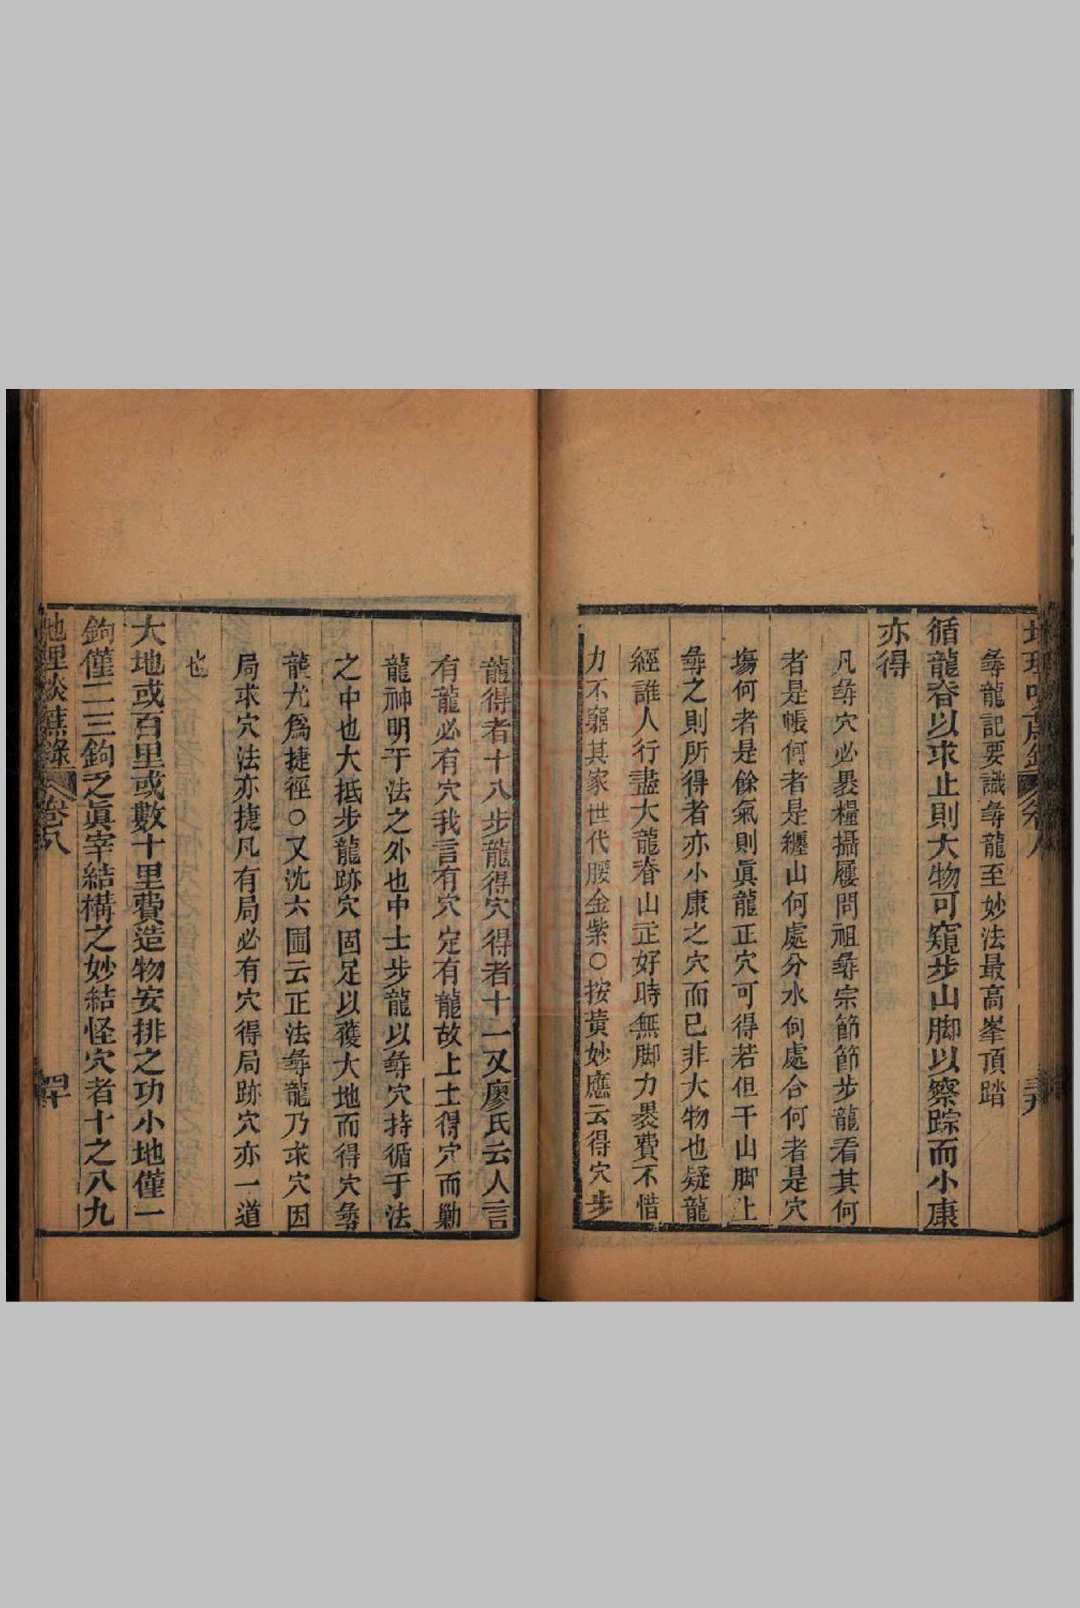 尋龍記要識尋龍至妙法最高峯頂踏
循龍脊以求止則大物可窺步山脚以察踪而小康
亦得
凡尋穴必裹糧攝屨問祖尋宗節節步龍看其何
者是帳何者是纏山何處分水何處合何者是穴
塲何者是餘氣則眞龍正穴可得若但于山脚上
尋之則所得者亦小康之穴而已非大物也疑龍
經誰人行盡大龍脊山正好時無脚力裹費不惜
力不竆其家世代腰金紫○按黃妙應云得穴步
龍得者十八步龍得穴得者十一又廖氏云人言
有龍必有穴我言有穴定有龍故上士得穴而勦
龍神明于法之外也中士步龍以尋穴持循于法
之中也大抵步龍跡穴固足以獲大地而得穴尋
龍尤爲捷徑○又沈六圃云正法尋龍乃求穴因
局求穴法亦捷凡有局必有穴得局跡穴亦一道
也
大地或百里或數十里費造物安排之功小地僅一
鉤僅二三鉤之眞宰結構之妙結怪穴者十之八九
卷八